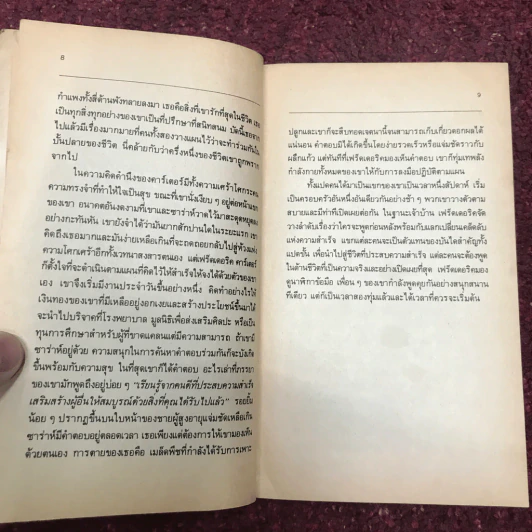 ๘
กำแพงทั้งสี่ด้านพังทลายลงมา เธอคือสิ่งที่เขารักที่สุดในชีวิต เธอ
เป็นทุกสิ่งทุกอย่างของเขาเป็นที่ปรึกษาที่สนิทสนม บัดนี้เธอจาก
ไปแล้วมีเรื่องมากมายที่คนทั้งสองวางแผนไว้ว่าจะทำร่วมกันใน
บั้นปลายของชีวิต นี่คล้ายกับว่าครึ่งหนึ่งของชีวิตเขาถูกพราก
จากไป
ในความคิดคำนึงของคาร์เตอร์มีทั้งความเศร้าโศกระคน
ความทรงจำที่ทำให้ใจเป็นสุข ขณะที่เขานั่งเงียบ ๆ อยู่ต่อหน้าแขก
ของเขา อนาคตอันงดงามที่เขาและซาร่าห์วาดไว้มาสะดุดหยุดลง
อย่างกะทันหัน เขายังจำได้ว่ามันยากสักปานใดในระยะแรก เขา
คิดถึงเธอมากและมันง่ายเหลือเกินที่จะถดถอยกลับไปสู่ห้วงแห่ง
ความโศกเศร้าอีกทั้งเวทนาสงสารตนเอง แต่เฟรดเดอริค คาร์เตอร์
ก็ตั้งใจที่จะดำเนินตามแผนที่คิดไว้ให้สำเร็จให้จงได้ด้วยตัวของเขา
เอง เขาจึงเริ่มมีงานประจำวันขึ้นอย่างหนึ่ง คิดทำอย่างไรให้
เงินทองของเขาที่มีเหลืออยู่งอกเงยและสร้างประโยชน์ขึ้นมาได้
จะนำไปบริจาคที่โรงพยาบาล มูลนิธิเพื่อส่งเสริมศิลปะ หรือเป็น
ทุนการศึกษาสำหรับผู้ที่ขาดแคลนแต่มีความสามารถ ถ้าเขามี
ซาร่าห์อยู่ด้วย ความสนุกในการค้นหาคำตอบร่วมกันก็จะบังเกิด
ขึ้นพร้อมกับความสุข ในที่สุดเขาก็ได้คำตอบ อะไรเล่าที่ภรรยา
ของเขามักพูดถึงอยู่บ่อย ๆ “เรียนรู้จากคนดีที่ประสบความสำเร็จ
เสริมสร้างผู้อื่นให้สมบูรณ์ด้วยสิ่งที่คุณได้รับไปแล้ว” รอยยิ้ม
น้อย ๆ ปรากฏขึ้นบนใบหน้าของชายผู้สูงอายุแจ่มชัดเหลือเกิน
ซาร่าห์มีคำตอบอยู่ตลอดเวลา เธอเพียงแต่ต้องการให้เขามองเห็น
ด้วยตนเอง การตายของเธอคือ เมล็ดพืชที่กำลังได้รับการเพาะ
๙
ปลูกและเขาก็จะสืบทอดเจตนานี้จนสามารถเก็บเกี่ยวดอกผลได้
แน่นอน คำตอบมิได้เกิดขึ้นโดยง่ายรวดเร็วหรือแจ่มชัดราวกับ
ผลึกแก้ว แต่ทันทีที่เฟรดเดอริคมองเห็นคำตอบ เขาก็ทุ่มเทพลัง
กำลังกายทั้งหมดของเขาให้กับการลงมือปฏิบัติตามแผน
ทั้งแปดคนได้มาเป็นแขกของเขาเป็นเวลาหนึ่งสัปดาห์ เริ่ม
เป็นครอบครัวอันหนึ่งอันเดียวกันอย่างช้า ๆ พวกเขาวางตัวตาม
สบายและมีท่าทีเปิดเผยต่อกัน ในฐานะเจ้าบ้าน เฟรดเดอริคจัด
วางลำดับเรื่องว่าใครจะพูดก่อนหลังพร้อมกับแลกเปลี่ยนเคล็ดลับ
แห่งความสำเร็จ แขกแต่ละคนจะเป็นตัวแทนของบันไดสำคัญทั้ง
แปดขั้น เพื่อนำไปสู่ชีวิตที่ประสบความสำเร็จ แต่ละคนจะต้องพูด
ในด้านชีวิตที่เป็นความจริงและอย่างเปิดเผยที่สุด เฟรดเดอริคมอง
ดูนาฬิกาข้อมือ เพื่อน ๆ ของเขากำลังพูดคุยกันอย่างสนุกสนาน
ทีเดียว แต่ก็เป็นเวลาสองทุ่มแล้วและได้เวลาที่ควรจะเริ่มต้น